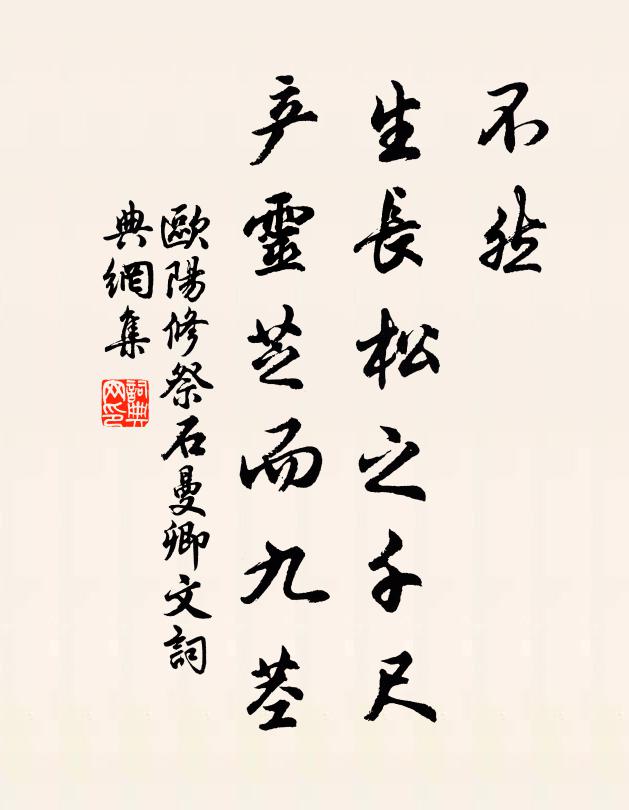 不然
生長松之千尺
产靈芝而九莖
歐陽修祭石曼卿文詞
典網集
詞典网印